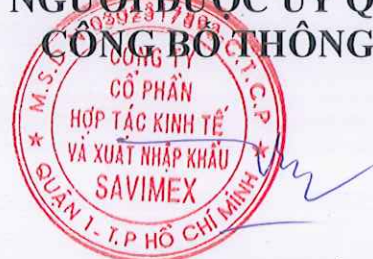 NGƯỜI ĐƯỢC ỦY Q
CÔNG BỐ THÔNG
CÔNG TY
CỔ PHẦN
HỢP TÁC KINH TẾ
VÀ XUẤT NHẬP KHẨU
SAVIMEX
QUẬN 1 - T.P HỒ CHÍ MINH